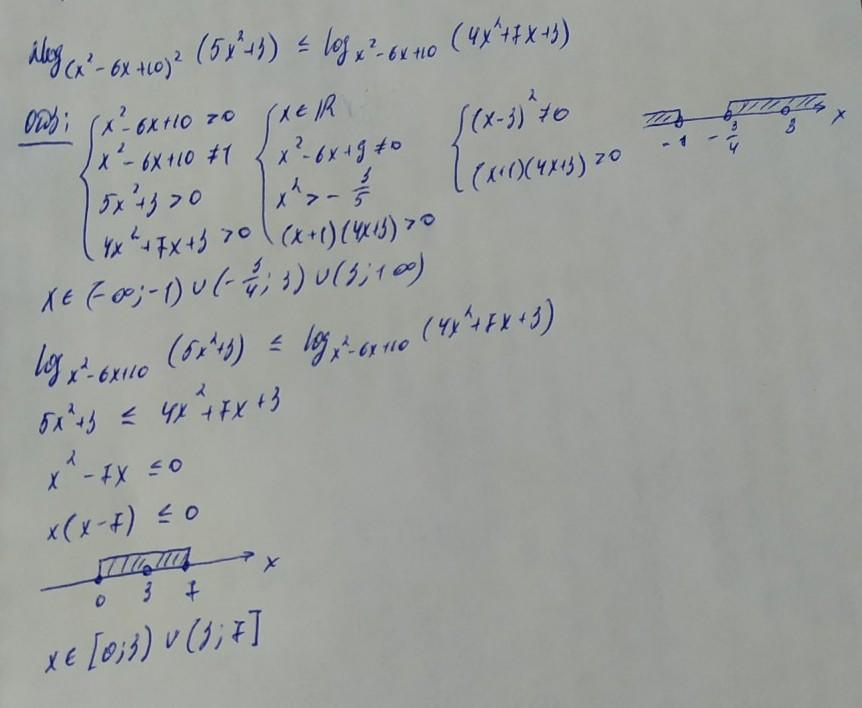 2log_{(x²-6x+10)²} (5x²+3) ≤ log_{x²-6x+10} (4x²+7x+3)
ОДЗ: { x²-6x+10 >0 { x∈ℝ { (x-3)²≠0
x²-6x+10 ≠1 x²-6x+9≠0 (x+1)(4x+3)>0
5x²+3>0 x²>-3/5
4x²+7x+3>0 (x+1)(4x+3)>0
-1 -3/4 3 x
x∈(-∞;-1)∪(-3/4;3)∪(3;+∞)
log_{x²-6x+10} (5x²+3) ≤ log_{x²-6x+10} (4x²+7x+3)
5x²+3 ≤ 4x²+7x+3
x²-7x ≤0
x(x-7) ≤ 0
0 3 7 x
x∈[0;3)∪(3;7]